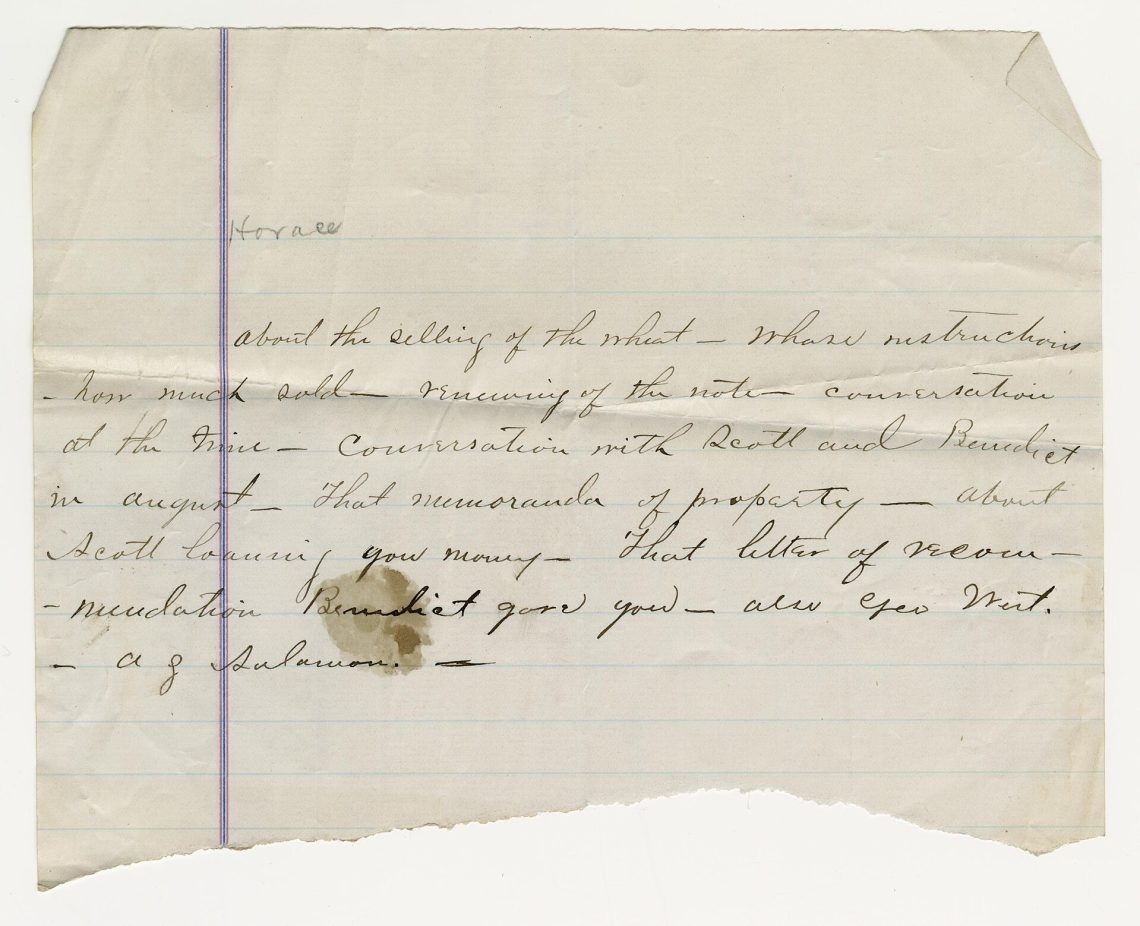 Horace
about the selling of the wheat — whose instructions
- how much sold — renewing of the note — conversation
at the time — Conversation with Scott and Benedict
in august — That memoranda of property — about
Scott loaning you money — That letter of recom-
-mendation Benedict gave you — also Geo West.
— a g Salamon. —